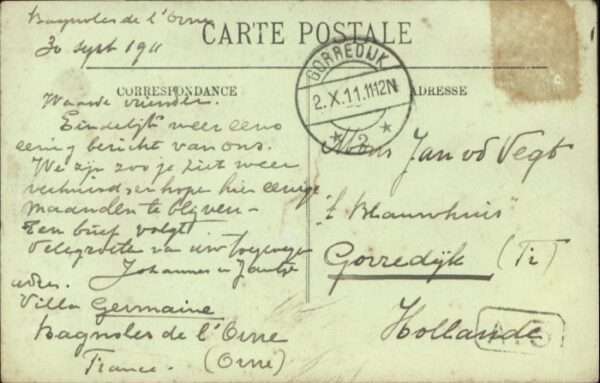 Bagnoles de l'Orne
30 sept 1911
CARTE POSTALE
CORRESPONDANCE
ADRESSE
GORREDIJK
2.X.11.1112N
2
Waarde vrienden.
Eindelijk weer eens
eenig bericht van ons.
We zijn zoo je ziet weer
verhuisd en hope hier eenige
maanden te blijven –
Een brief volgt.
Vele groete van uw toegenegen
Johannes en
adres.
Villa Germaine
Bagnoles de l'Orne
France. (Orne)
Mons Jan vd Vegt
"'t Blauwhuis"
Gorredijk (Fr)
Hollande